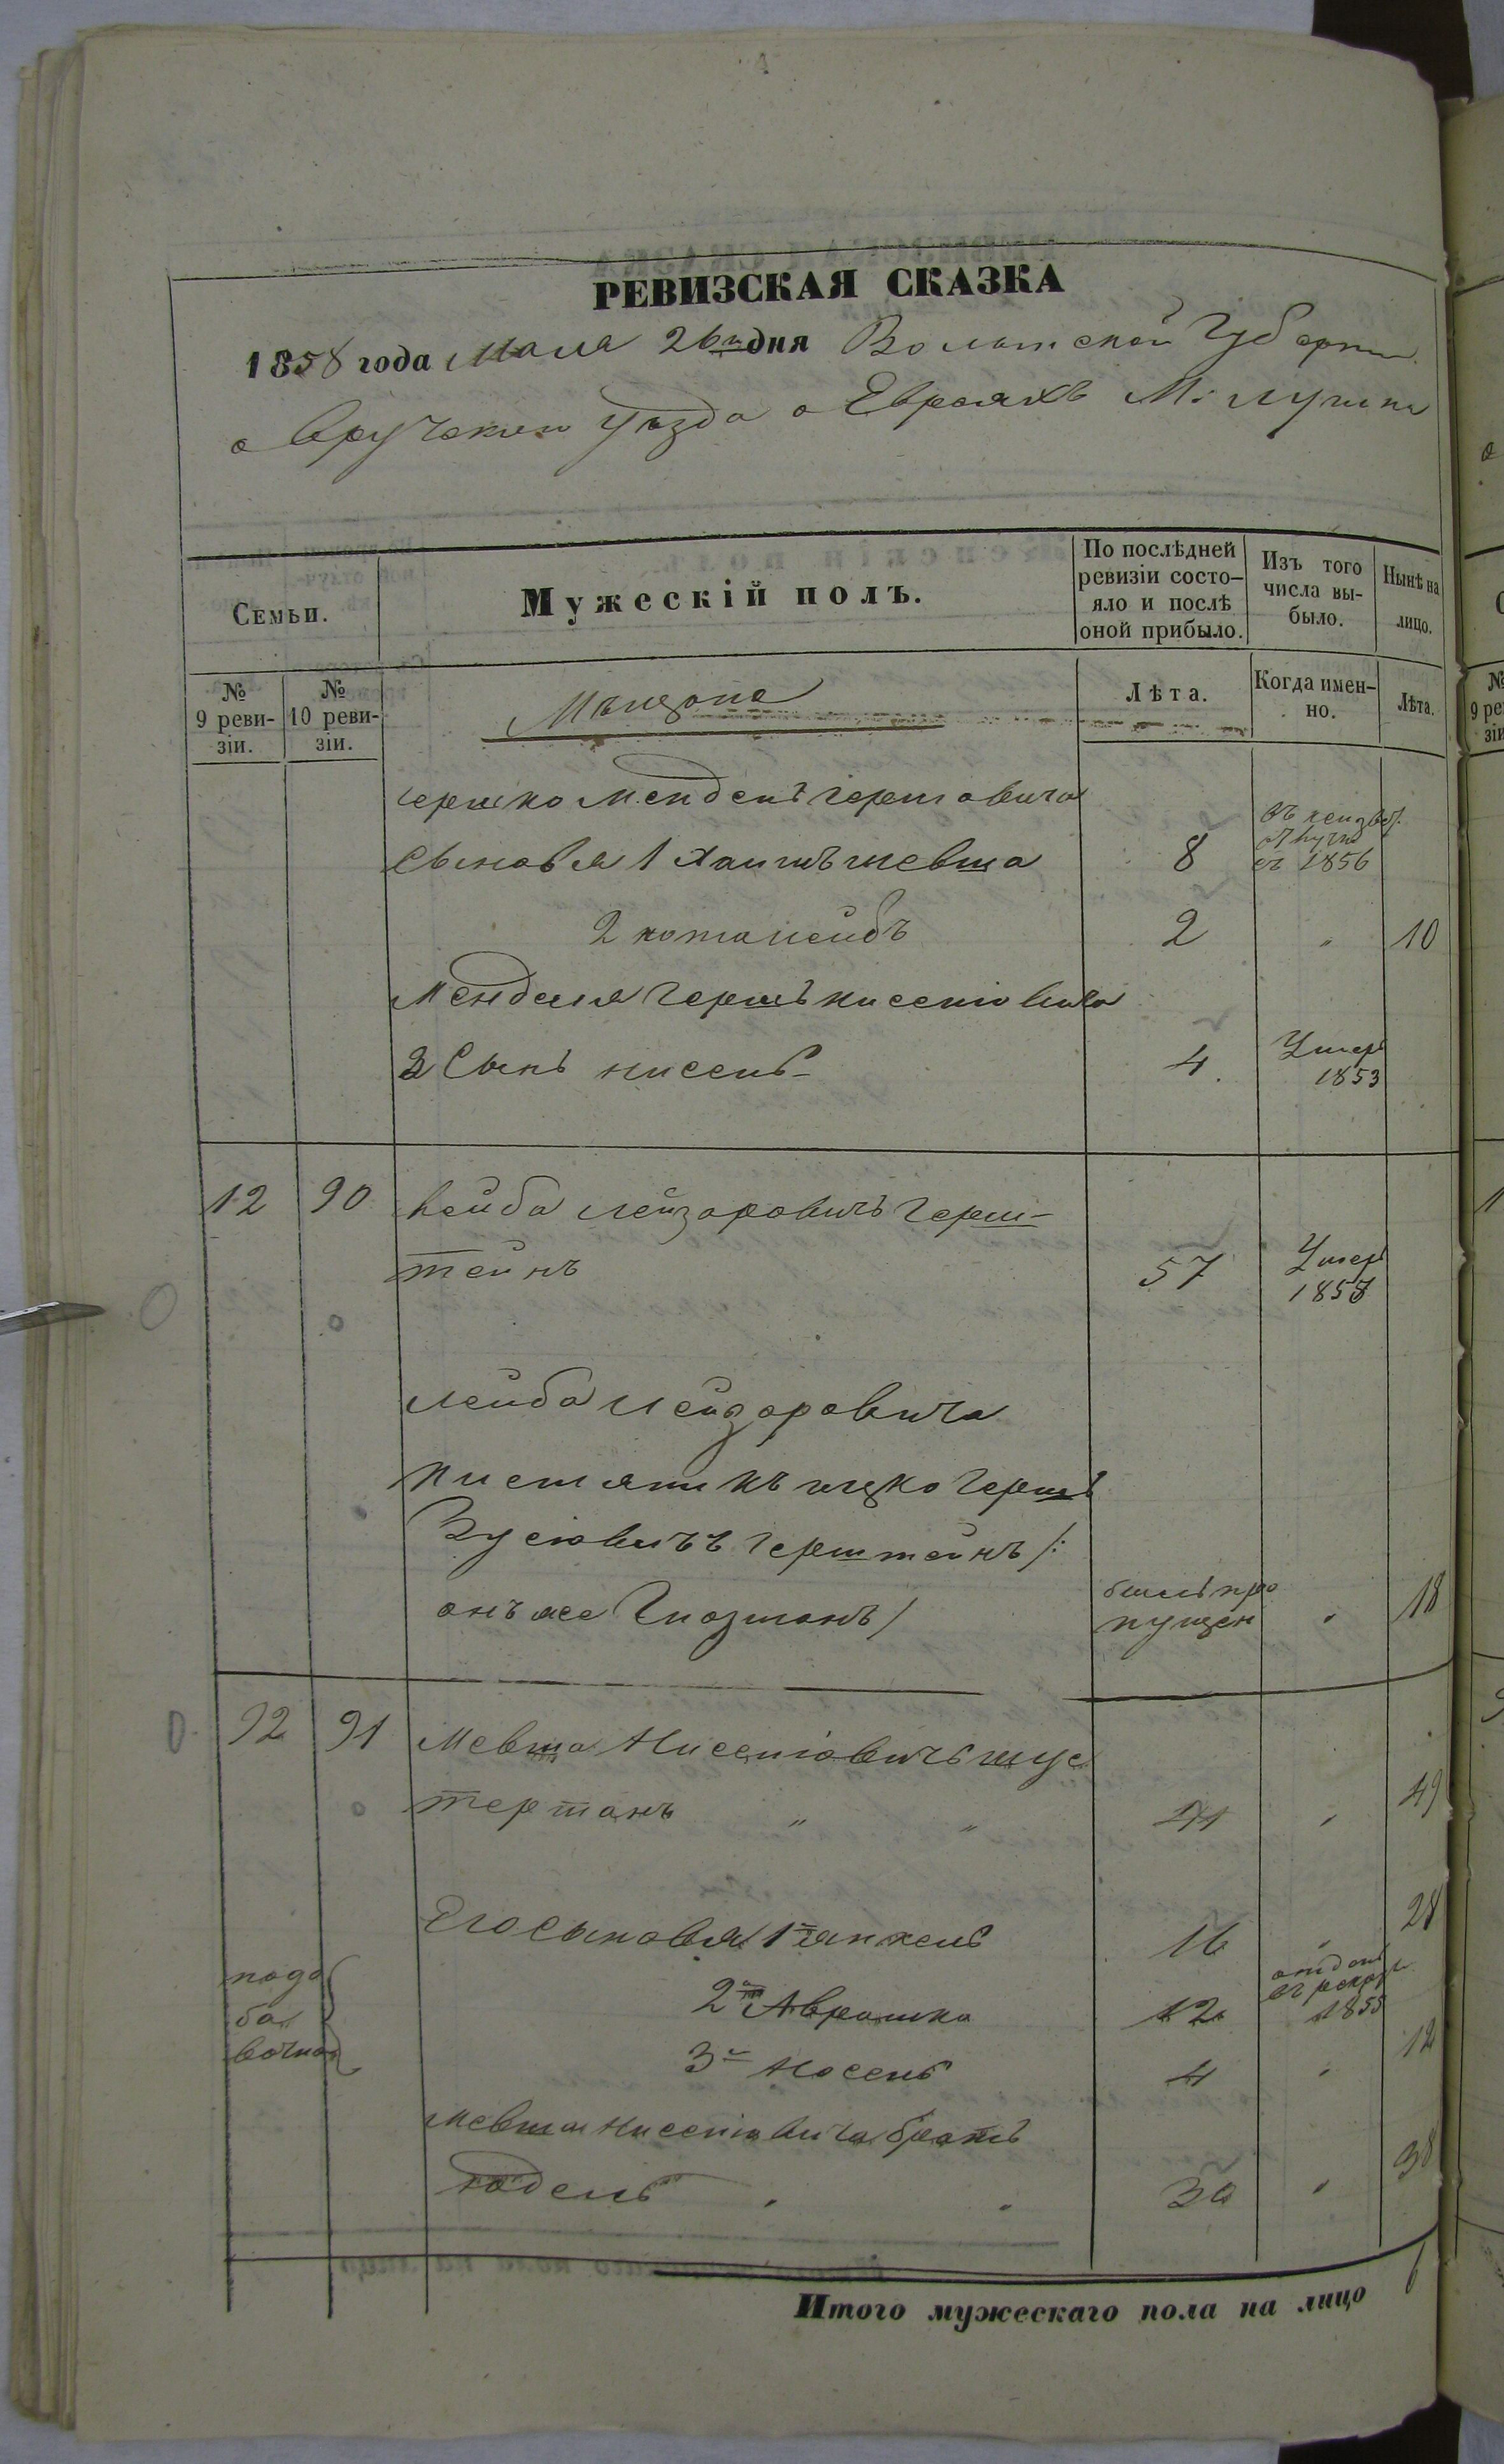 РЕВИЗСКАЯ СКАЗКА
1858 года Мая 26 дня Волынской Губернии
Овручскаго уезда о Евреяхъ М: Лугинъ
Семьи.
Мужескій полъ.
По послѣдней ревизіи состо-яло и послѣ оной прибыло.
Изъ того числа вы-было.
Нынѣ на лицо.
№ 9 реви-зіи.
№ 10 реви-зіи.
Мещане
Лѣта.
Когда имен-но.
Лѣта.
Гершко Мендель Гершовича
Сыновья 1 Хаимъ Шевша 8 въ 1856
2 2 " 10
Менделя Гершъ Нисеніовича
3 Сынъ Нисень 4 Умеръ 1853
12 90 Лейба Лейзоровичъ Герш-
тейнъ 57 Умеръ 1858
Лейба Лейзоровича
Ицко Гершъ
Зусіовичъ Герштейнъ /:
онъ же Глозманъ / былъ про
пущен " 18
92 91 Мевша Нисеніовичъ Шус
терманъ " " "
49
Его Сыновья 1й Янкель 16 " 28
2й Аврашко 12 отдан въ рекруты 1855
3й Носень 4 " 12
Мевша Нисеніовича братъ
Юдель " " 30 " 38
Итого мужескаго пола на лицо 6